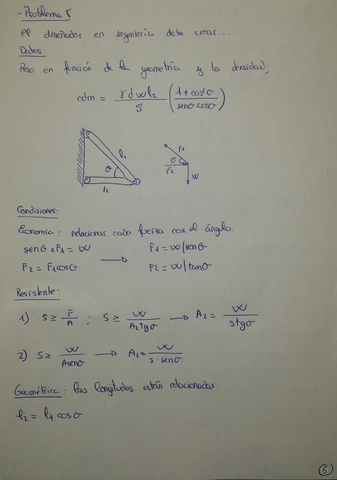 - Problema 5
El diseñador en ingeniería debe crear....
Datos:
Peso en función de la geometría y la densidad;
cdm = γ d w l2 / S ( 1 + cos²σ / senσ cosσ )
l1
σ
l2
F1
σ
F2
W
Condiciones:
Economía: relacionar cada fuerza con el ángulo.
senσ x F1 = W → F1 = W/senσ
F2 = F1cosσ F2 = W/tanσ
Resistente:
1) S ≥ F/A ; S ≥ W/A2 tgσ → A2 = W/s tgσ
2) S ≥ W/A senσ → A1 = W/s · senσ
Geométrica: las longitudes están relacionadas.
l2 = l1 cosσ
6